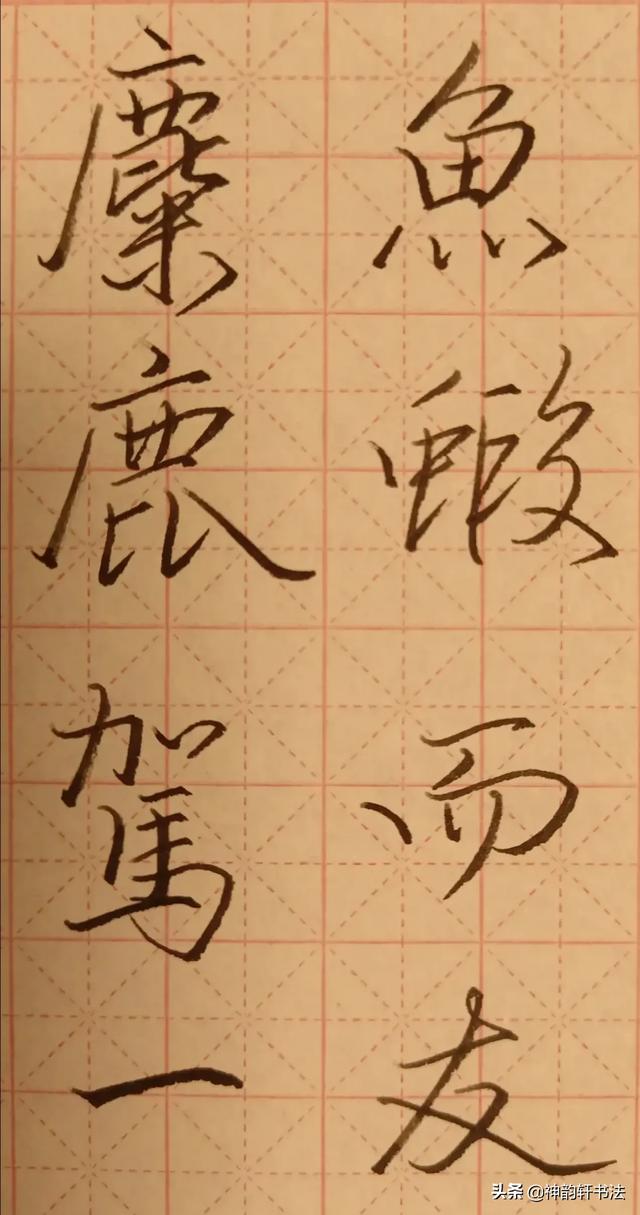 魚蝦而友
麋鹿駕一
头条 @神韵轩书法